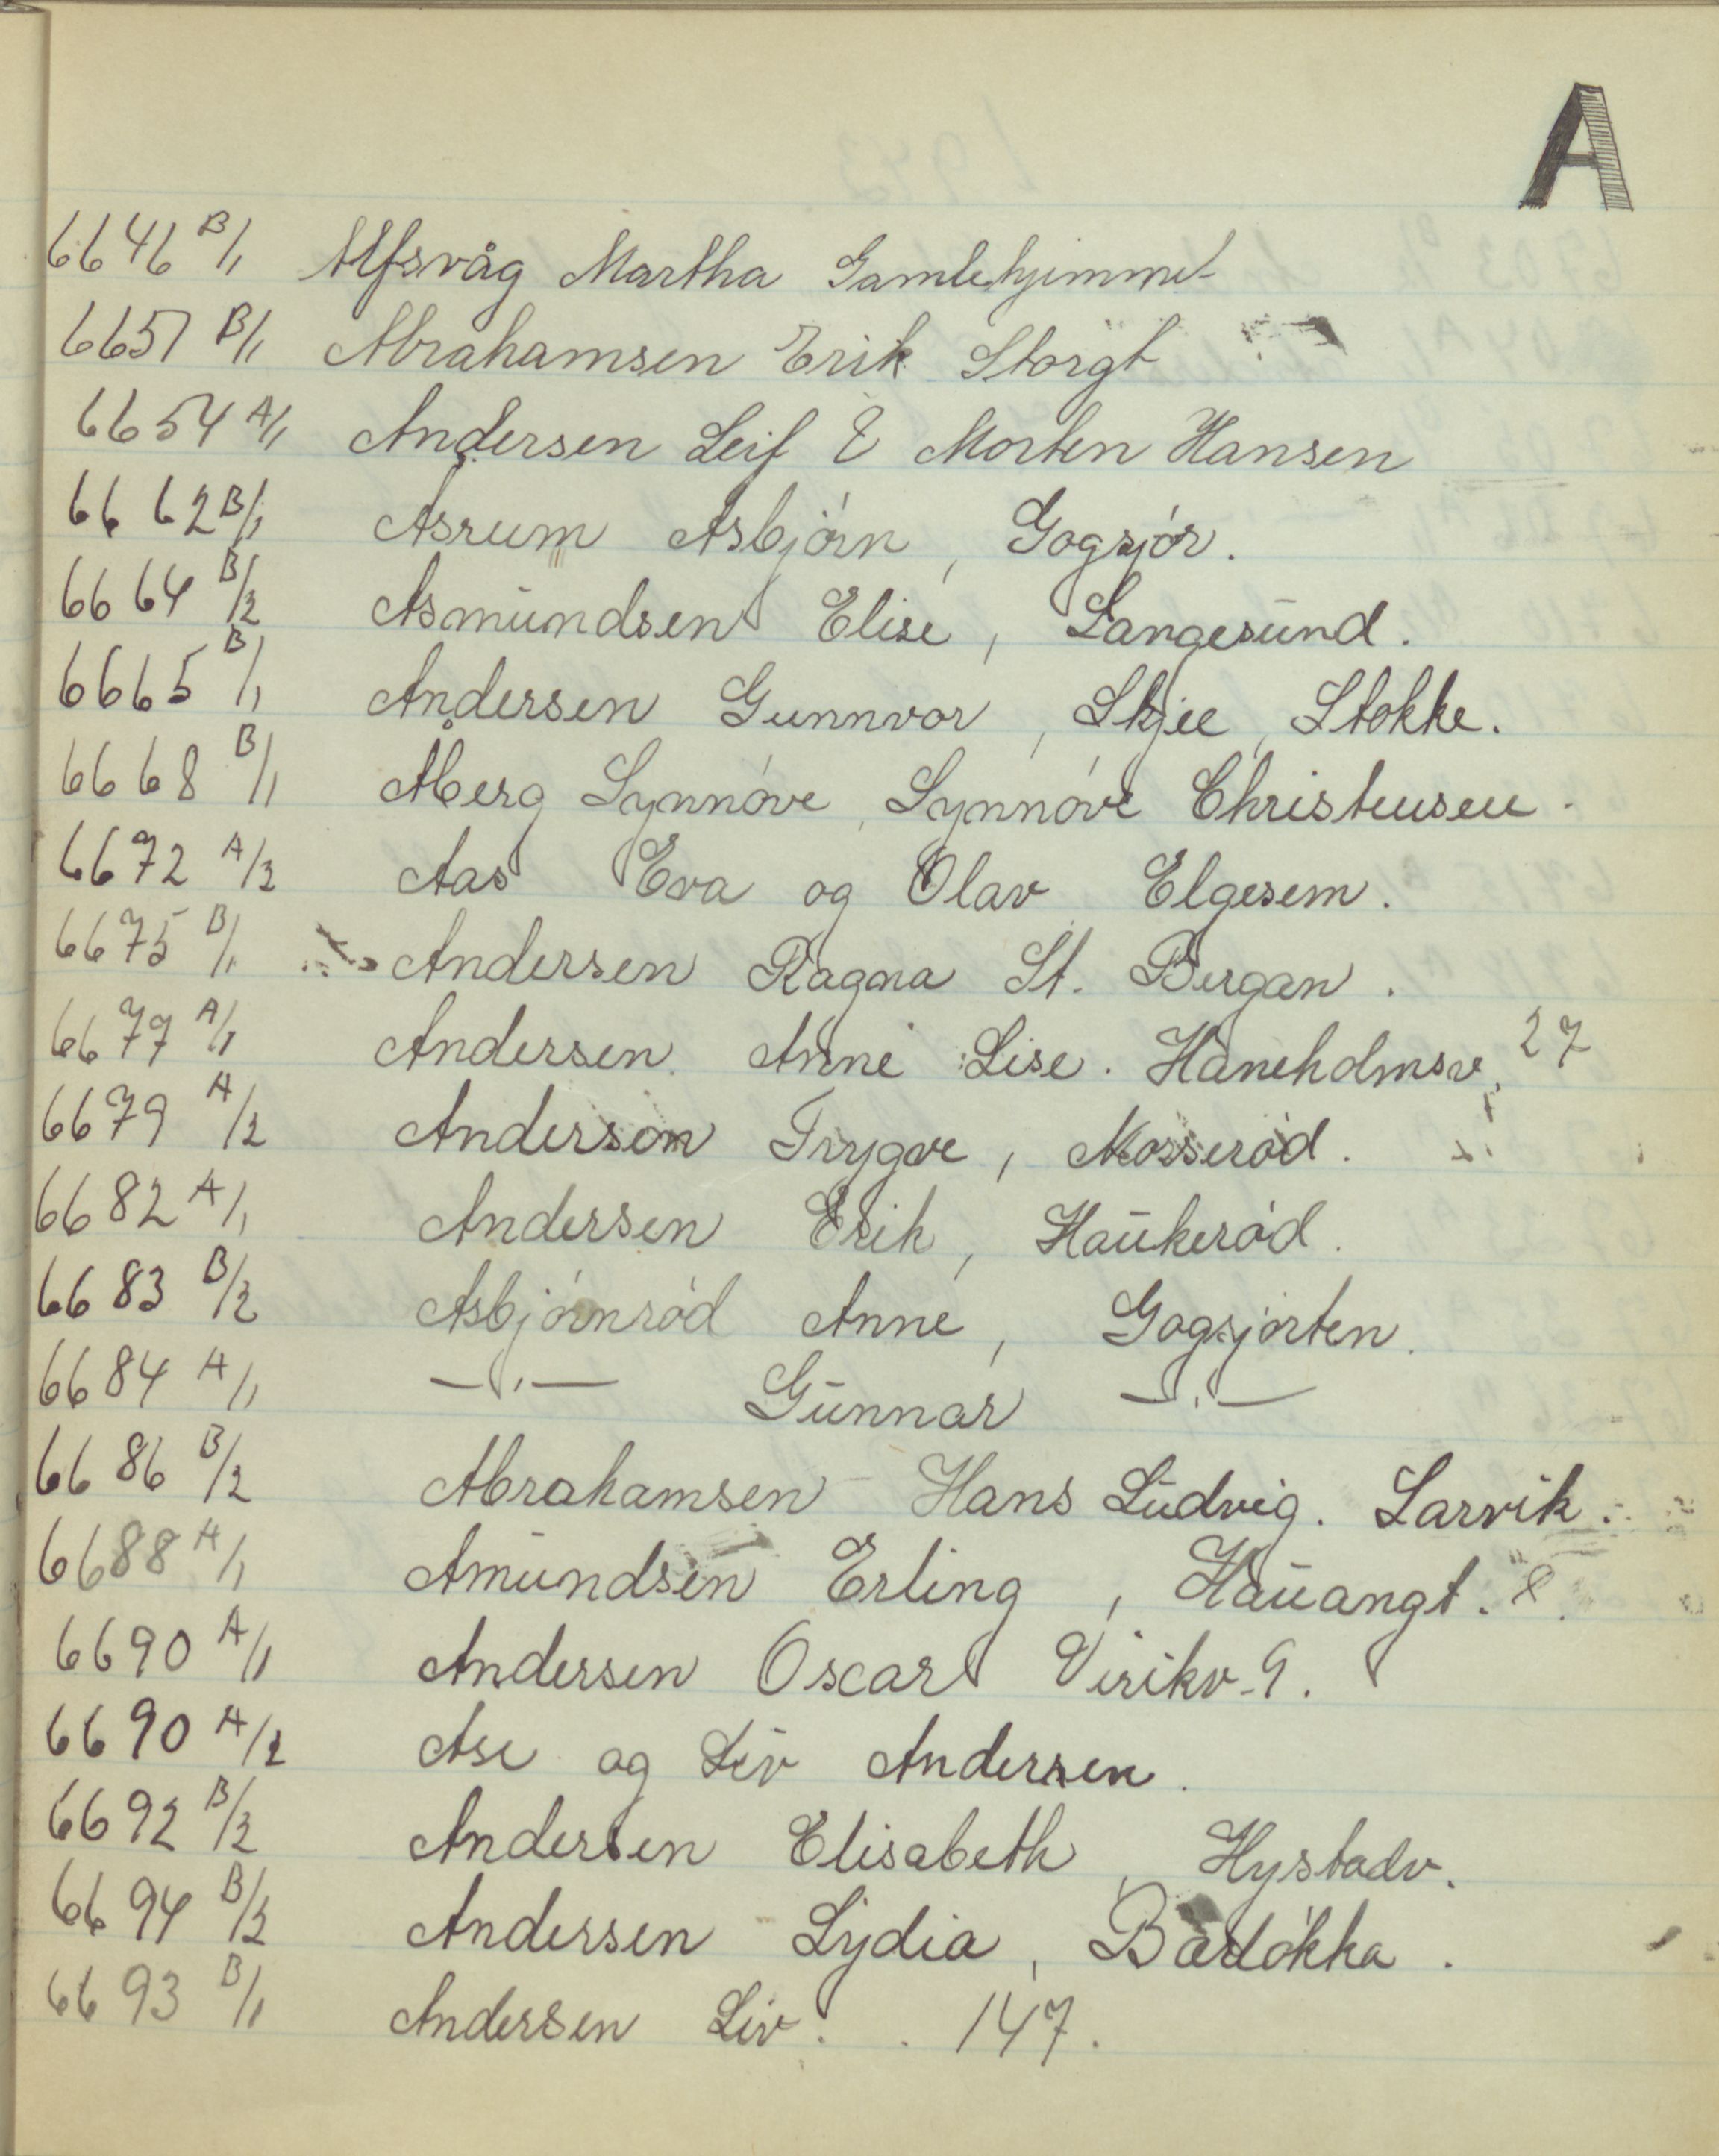 A
6646 B/1 Alfsvåg Martha Gamlehjimmet
6651 B/1 Abrahamsen Erik Storgt
6654 A/1 Andersen Leif & Morten Hansen
6662 B/1 Asrum Asbjörn, Gogsjör.
6664 B/2 Asmundsen Elise, Langesund.
6665 B/1 Andersen Gunnvor, Skjee, Stokke.
6668 B/1 Åberg Synnöve, Synnöve Christensen.
6672 A/2 Aas Eva og Olav Elgesem.
6675 B/1 Andersen Ragna St. Bergan.
6677 A/1 Andersen Anne Lise. Haneholmsv. 27
6679 A/2 Anderson Trygve, Mosseröd.
6682 A/1 Andersen Erik, Haukeröd.
6683 B/2 Asbjörnröd Anne, Gogsjorten.
6684 A/1 —"— Gunnar —"—
6686 B/2 Abrahamsen Hans Ludvig. Larvik.
6688 A/1 Amundsen Erling, Hauangt. 8.
6690 A/1 Andersen Oscar Virikv. 9.
6690 A/2 Ase og Liv Andersen.
6692 B/2 Andersen Elisabeth, Hystadv.
6694 B/2 Andersen Lydia, Bærlökka.
6693 B/1 Andersen Liv. . 147.